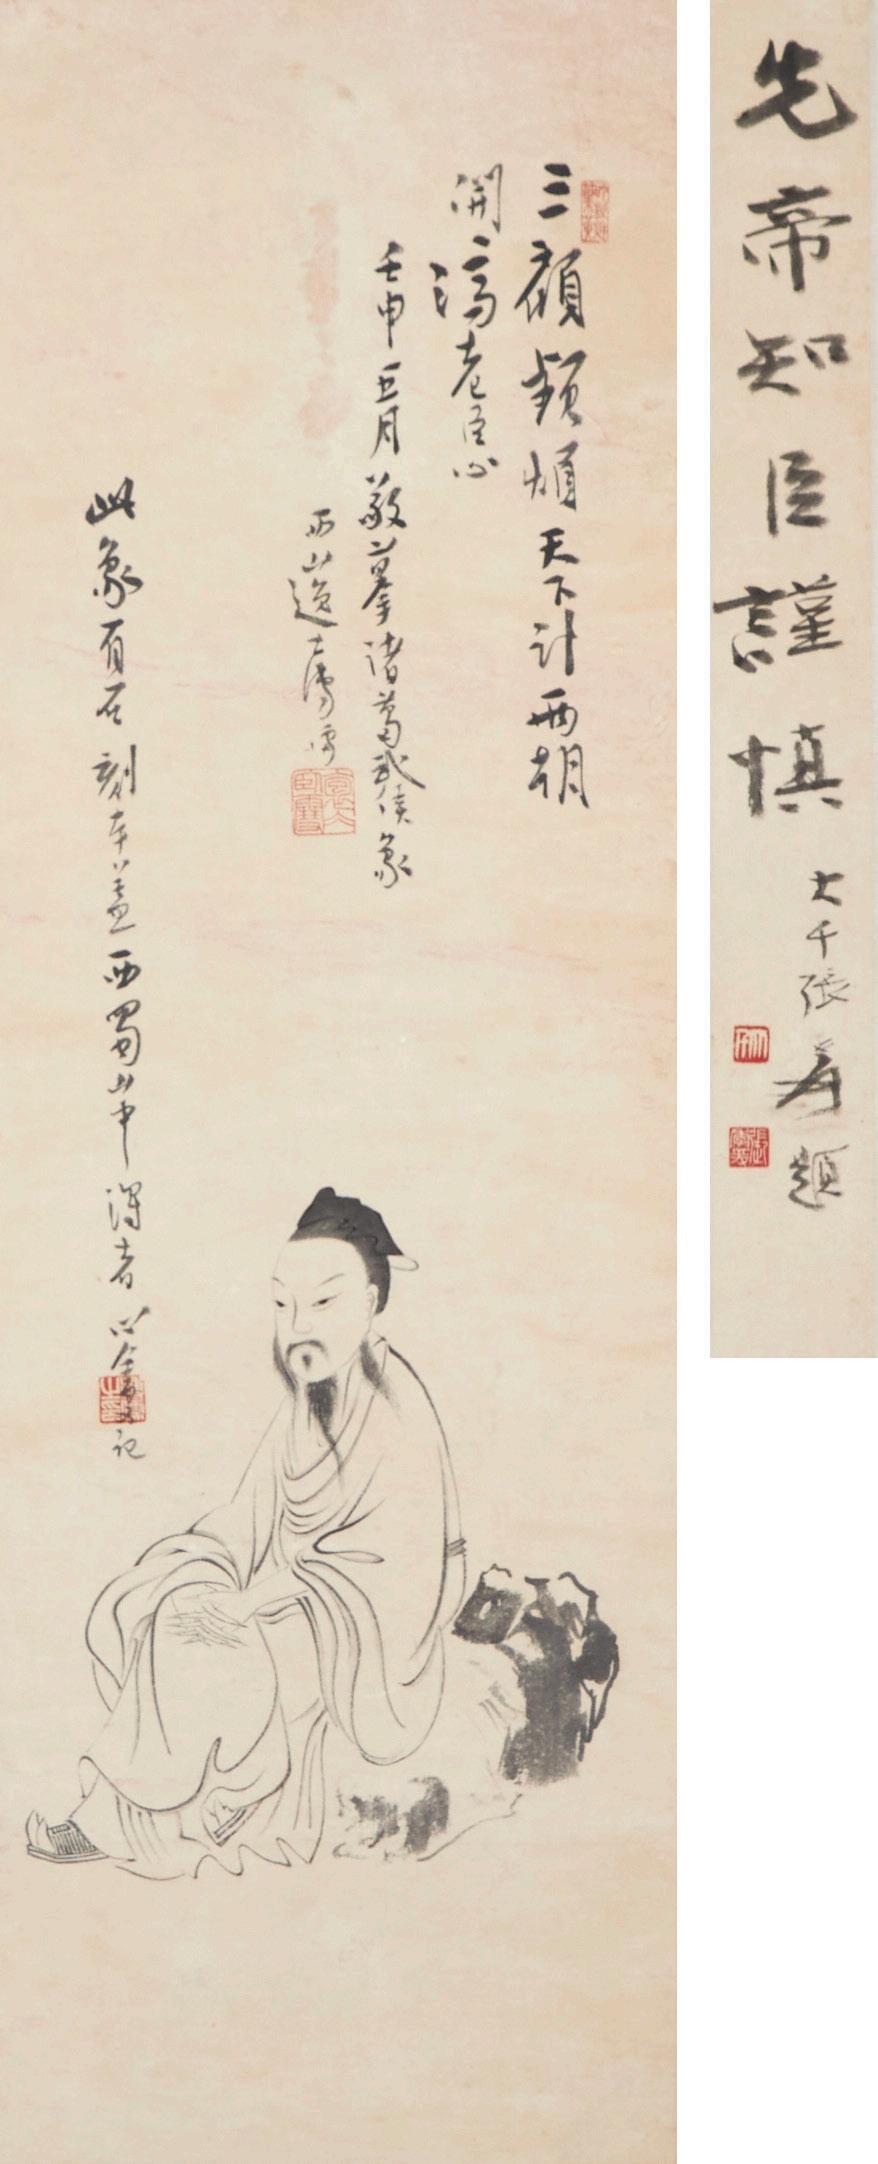 先帝知臣謹慎
大千張爰題
三顧頻煩天下計兩朝
開濟老臣心
壬申五月敬摹諸葛武侯象
西山逸士溥儒
此象有石刻本蓋西蜀山中得者心畬又記